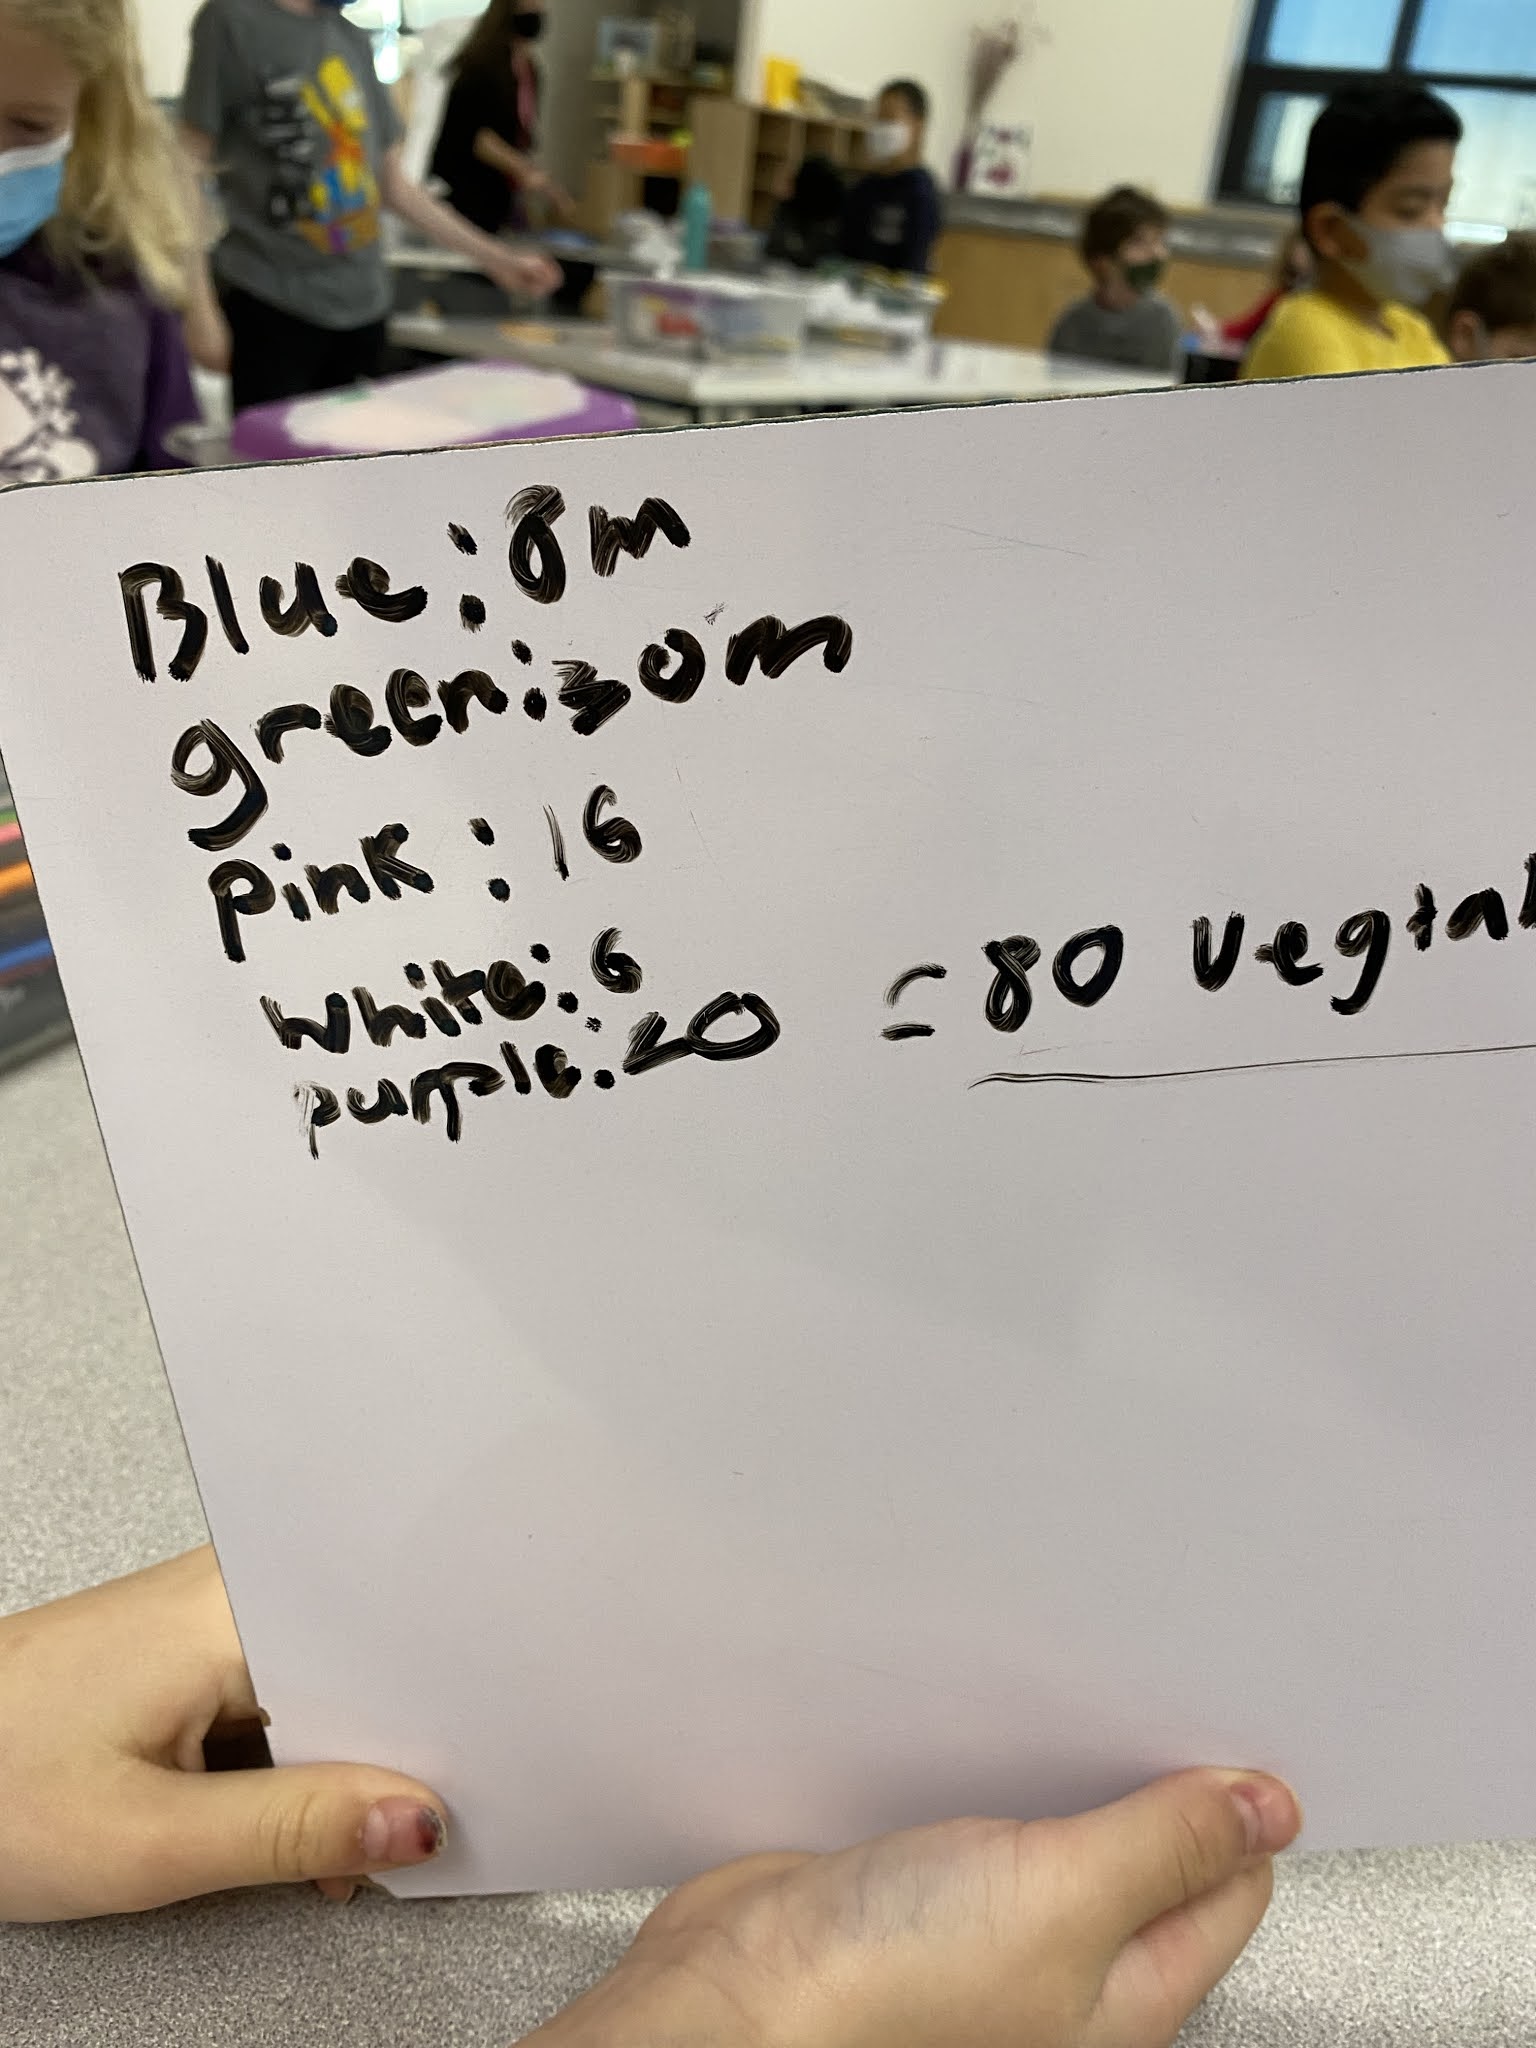 Blue: 8m
green: 30m
pink: 16
white: 6
purple: 20 = 80 vegtab